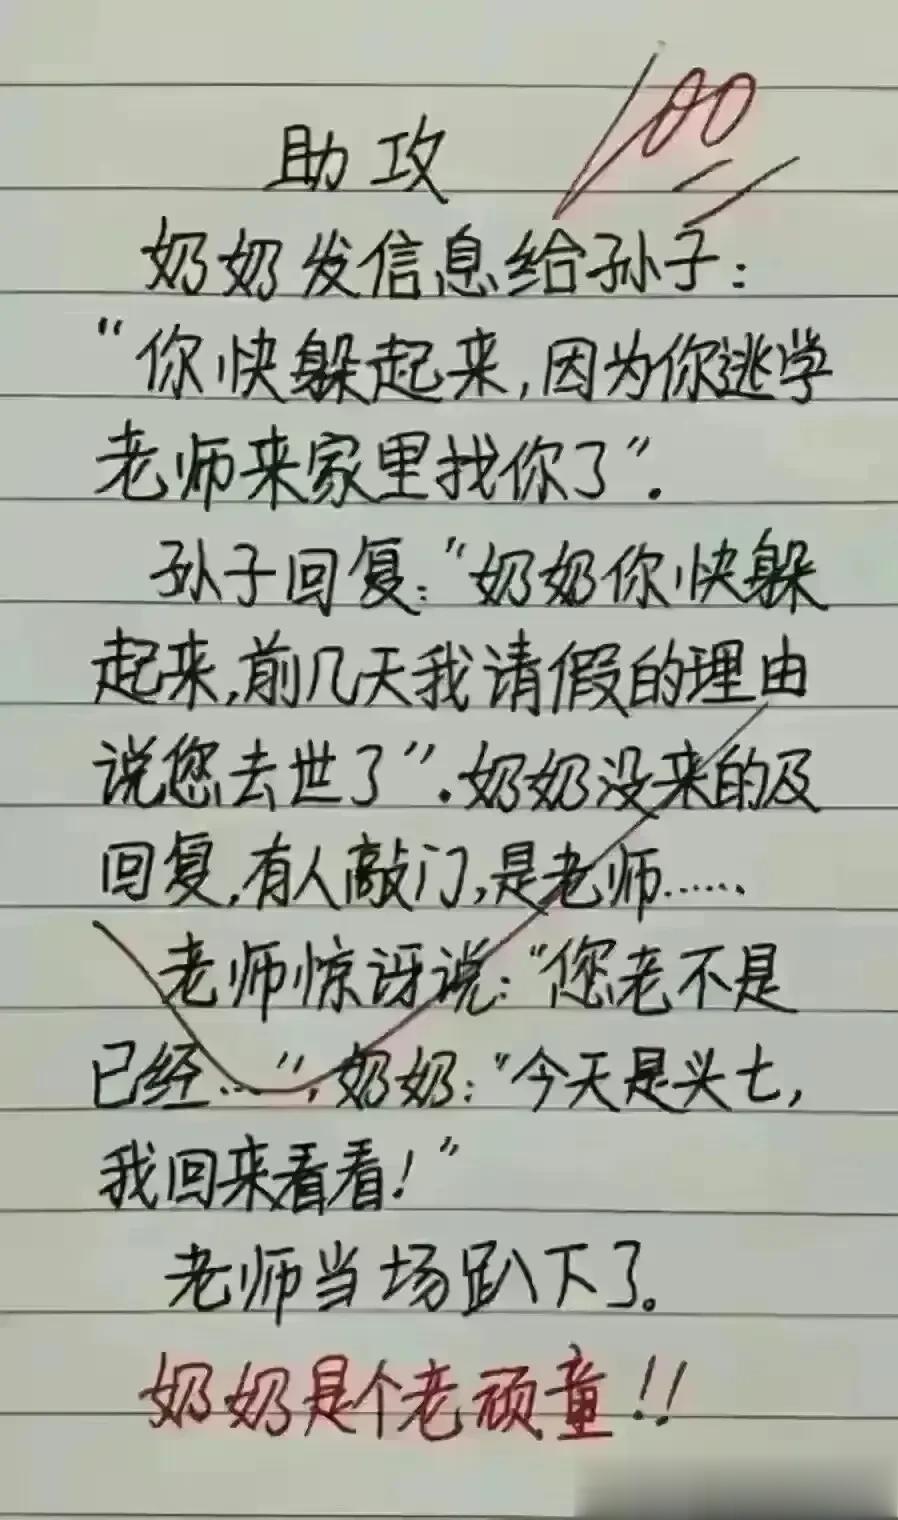 助攻
100
奶奶发信息给孙子：
“你快躲起来，因为你逃学
老师来家里找你了”.
孙子回复：“奶奶你快躲
起来,前几天我请假的理由
说您去世了”.奶奶没来的及
回复,有人敲门,是老师……
老师惊讶说：“您老不是
已经…”,奶奶：“今天是头七,
我回来看看！”
老师当场趴下了。
奶奶是个老顽童!!